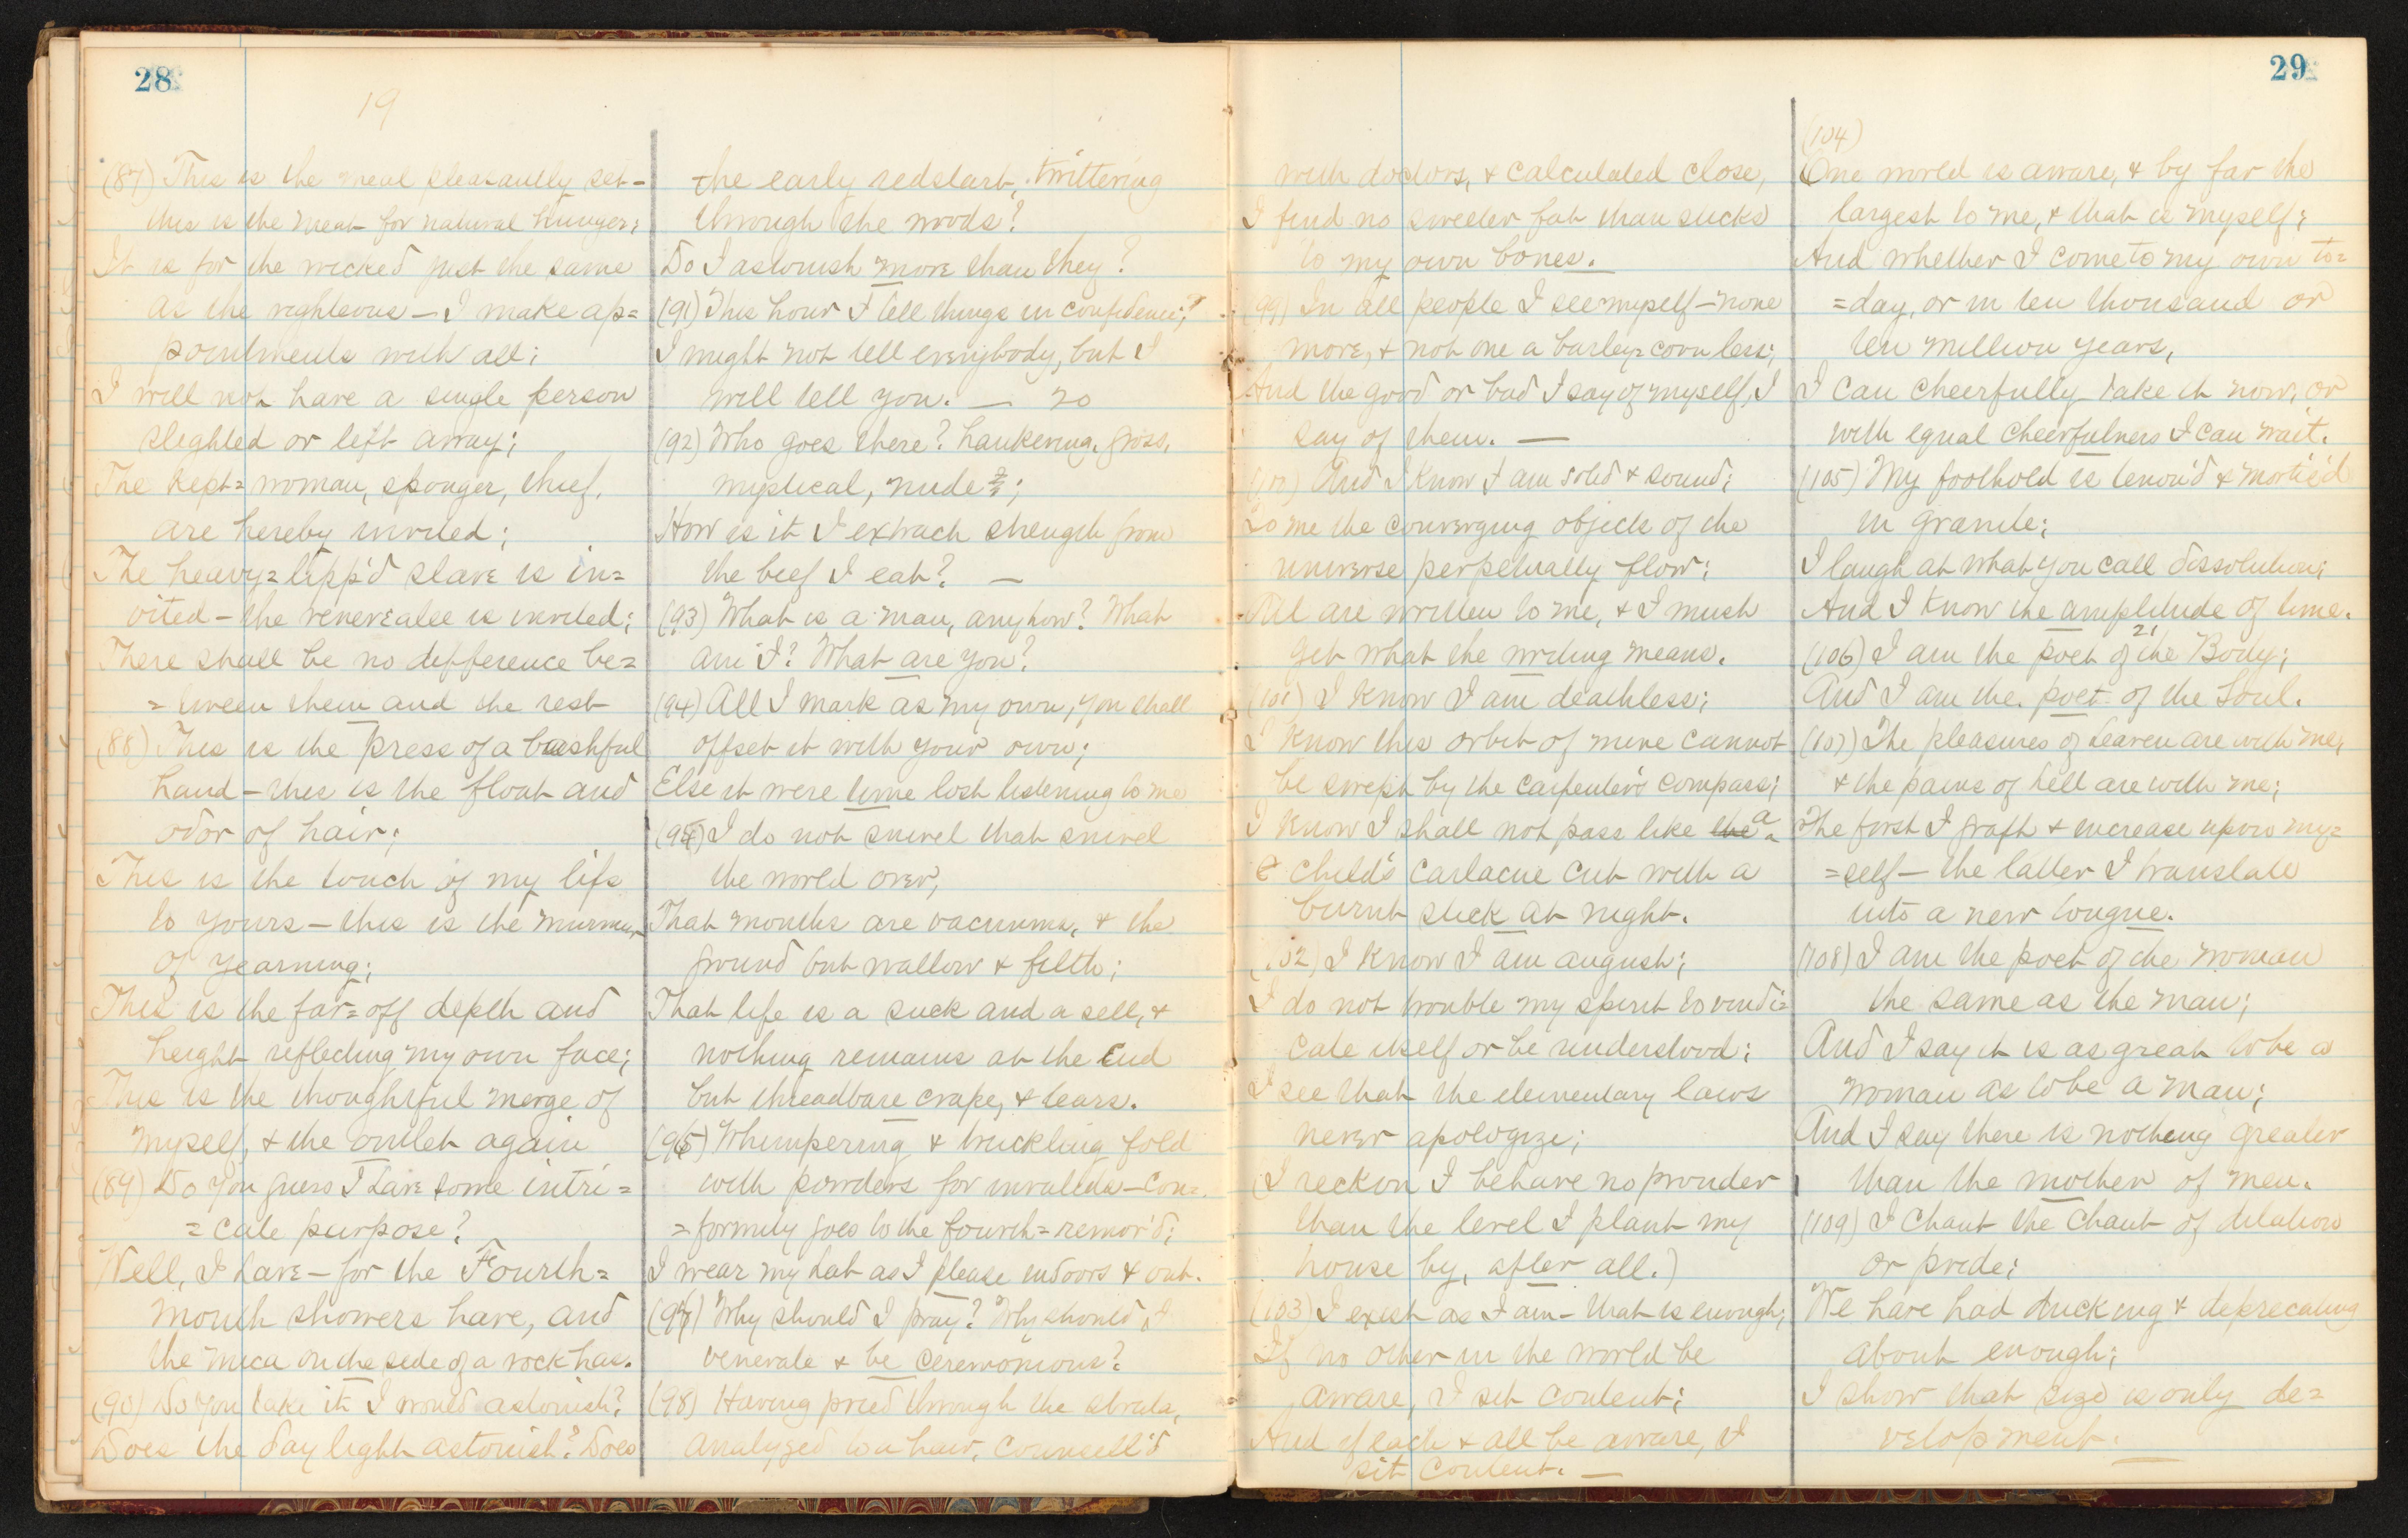 28
19
(87) This is the meal pleasantly set—
this is the meat for natural hunger;
It is for the wicked just the same
as the righteous — I make ap=
pointments with all;
I will not have a single person
slighted or left away;
The kept=woman, sponger, thief,
are hereby invited;
The heavy=lipp'd slave is in=
vited — the venerealee is invited;
There shall be no difference be=
=tween them and the rest
(88) This is the press of a bashful
hand — this is the float and
odor of hair;
This is the touch of my lips
to yours — this is the murmur
of yearning;
This is the far=off depth and
height reflecting my own face;
This is the thoughtful merge of
myself, & the outlet again
(89) Do you guess I have some intri=
=cate purpose?
Well, I have — for the Fourth=
month showers have, and
the mica on the side of a rock has.
(90) Do you take it I would astonish?
Does the daylight astonish? Does
the early redstart, twittering
through the woods?
Do I astonish more than they?
(91) This hour I tell things in confidence;
I might not tell everybody, but I
will tell you. — 20
(92) Who goes there? hankering, gross,
mystical, nude;
How is it I extract strength from
the beef I eat? —
(93) What is a man, anyhow? What
am I? What are you?
(94) All I mark as my own, you shall
offset it with your own;
Else it were time lost listening to me
(95) I do not snivel that snivel
the world over,
That months are vacuums, & the
ground but wallow & filth;
That life is a suck and a sell, &
nothing remains at the End
but threadbare crape, & tears.
(96) Whimpering & truckling fold
with powders for invalids — Con=
=formity goes to the fourth=remov'd;
I wear my hat as I please indoors & out.
(97) Why should I pray? Why should I
venerate & be ceremonious?
(98) Having pried through the strata,
analyzed to a hair, counsell'd
29
with doctors, & calculated close,
I find no sweeter fat than sticks
to my own bones.
(99) In all people I see myself — none
more, & not one a barley=corn less;
And the good or bad I say of myself, I
say of them. —
(100) And I know I am solid & sound;
To me the converging objects of the
universe perpetually flow;
All are written to me, & I must
get what the writing means.
(101) I know I am deathless;
I know this orbit of mine cannot
be swept by the carpenter's compass;
I know I shall not pass like the a
child's carlacue cut with a
burnt stick at night.
(102) I know I am august;
I do not trouble my spirit to vindi=
cate itself or be understood;
I see that the elementary laws
never apologize;
(I reckon I behave no prouder
than the level I plant my
house by, after all.)
(103) I exist as I am — that is enough;
If no other in the world be
aware, I sit content;
And if each & all be aware, I
sit content. —
(104)
One world is aware, & by far the
largest to me, & that is myself;
And whether I come to my own to=
=day, or in ten thousand or
ten million years,
I can cheerfully take it now, or
with equal cheerfulness I can wait.
(105) My foothold is tenon'd & mortis'd
in granite;
I laugh at what you call dissolution;
And I know the amplitude of time.
21
(106) I am the poet of the Body;
And I am the poet of the Soul.
(107) The pleasures of heaven are with me,
& the pains of hell are with me;
The first I graft & increase upon my=
=self — the latter I translate
into a new tongue.
(108) I am the poet of the woman
the same as the man;
And I say it is as great to be a
woman as to be a man;
And I say there is nothing greater
than the mother of men.
(109) I chant the chant of dilation
or pride;
We have had ducking & deprecating
about enough;
I show that size is only de=
velopment.